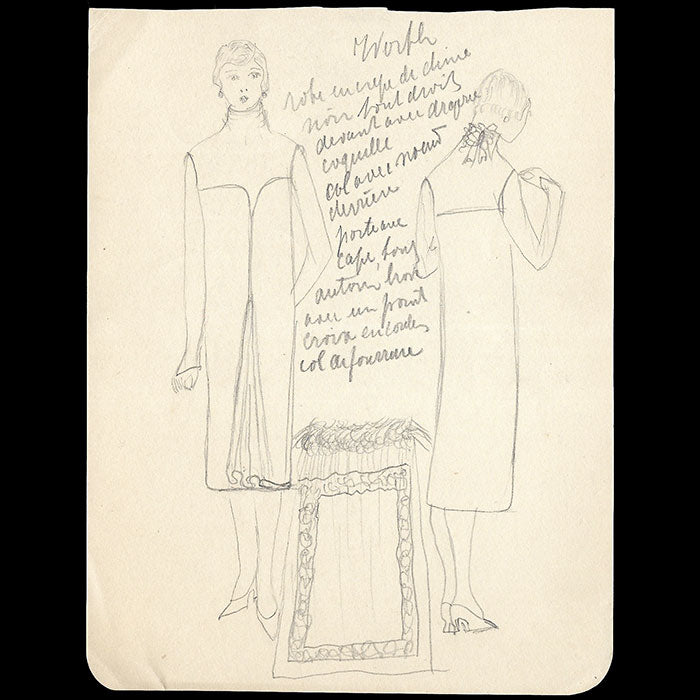 Worth
robe en crepe de chine
noir tout droit
devant avec draperie
coquille
col avec noeud
derrière
porte avec
cape, long
autour brode
avec un point
croix en coule
col de fourrure